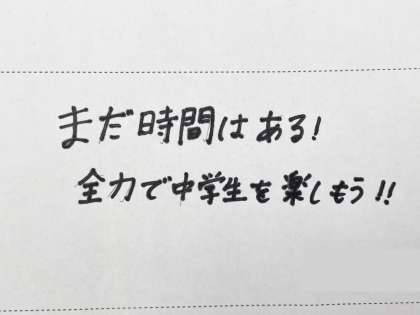 まだ時間はある!
全力で中学生を楽しもう!!